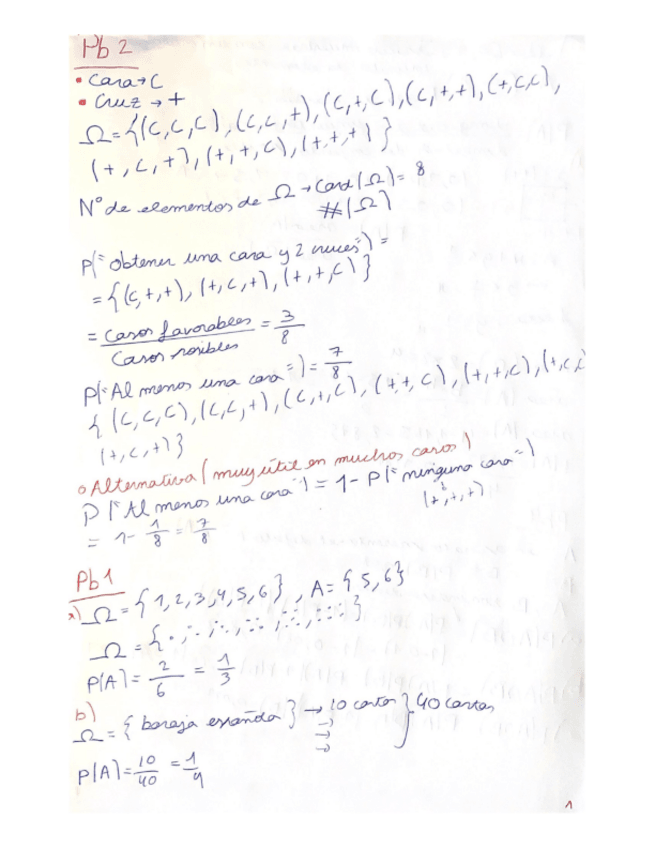 Pb 2
• Cara → C
• Cruz → +
Ω = {(C, C, C), (C, C, +), (C, +, C), (C, +, +), (+, C, C),
(+, C, +), (+, +, C), (+, +, +)}
Nº de elementos de Ω → Card(Ω) = 8
#(Ω)
P("obtener una cara y 2 cruces") =
= {(C, +, +), (+, C, +), (+, +, C)}
= Casos favorables / Casos posibles = 3/8
P("Al menos una cara") = 7/8
{(C, C, C), (C, C, +), (C, +, C), (+, C), (+, +, C), (+, C, C
(+, C, +)}
o Alternativa (muy útil en muchos casos)
P("Al menos una cara") = 1 - P("ninguna cara")
(+, +, +)
= 1 - 1/8 = 7/8
Pb 1
a) Ω = {1, 2, 3, 4, 5, 6}, A = {5, 6}
Ω = {
P(A) = 2/6 = 1/3
b)
Ω = {baraja española} → 10 cartas } 40 cartas
→
→
→
P(A) = 10/40 = 1/4
1